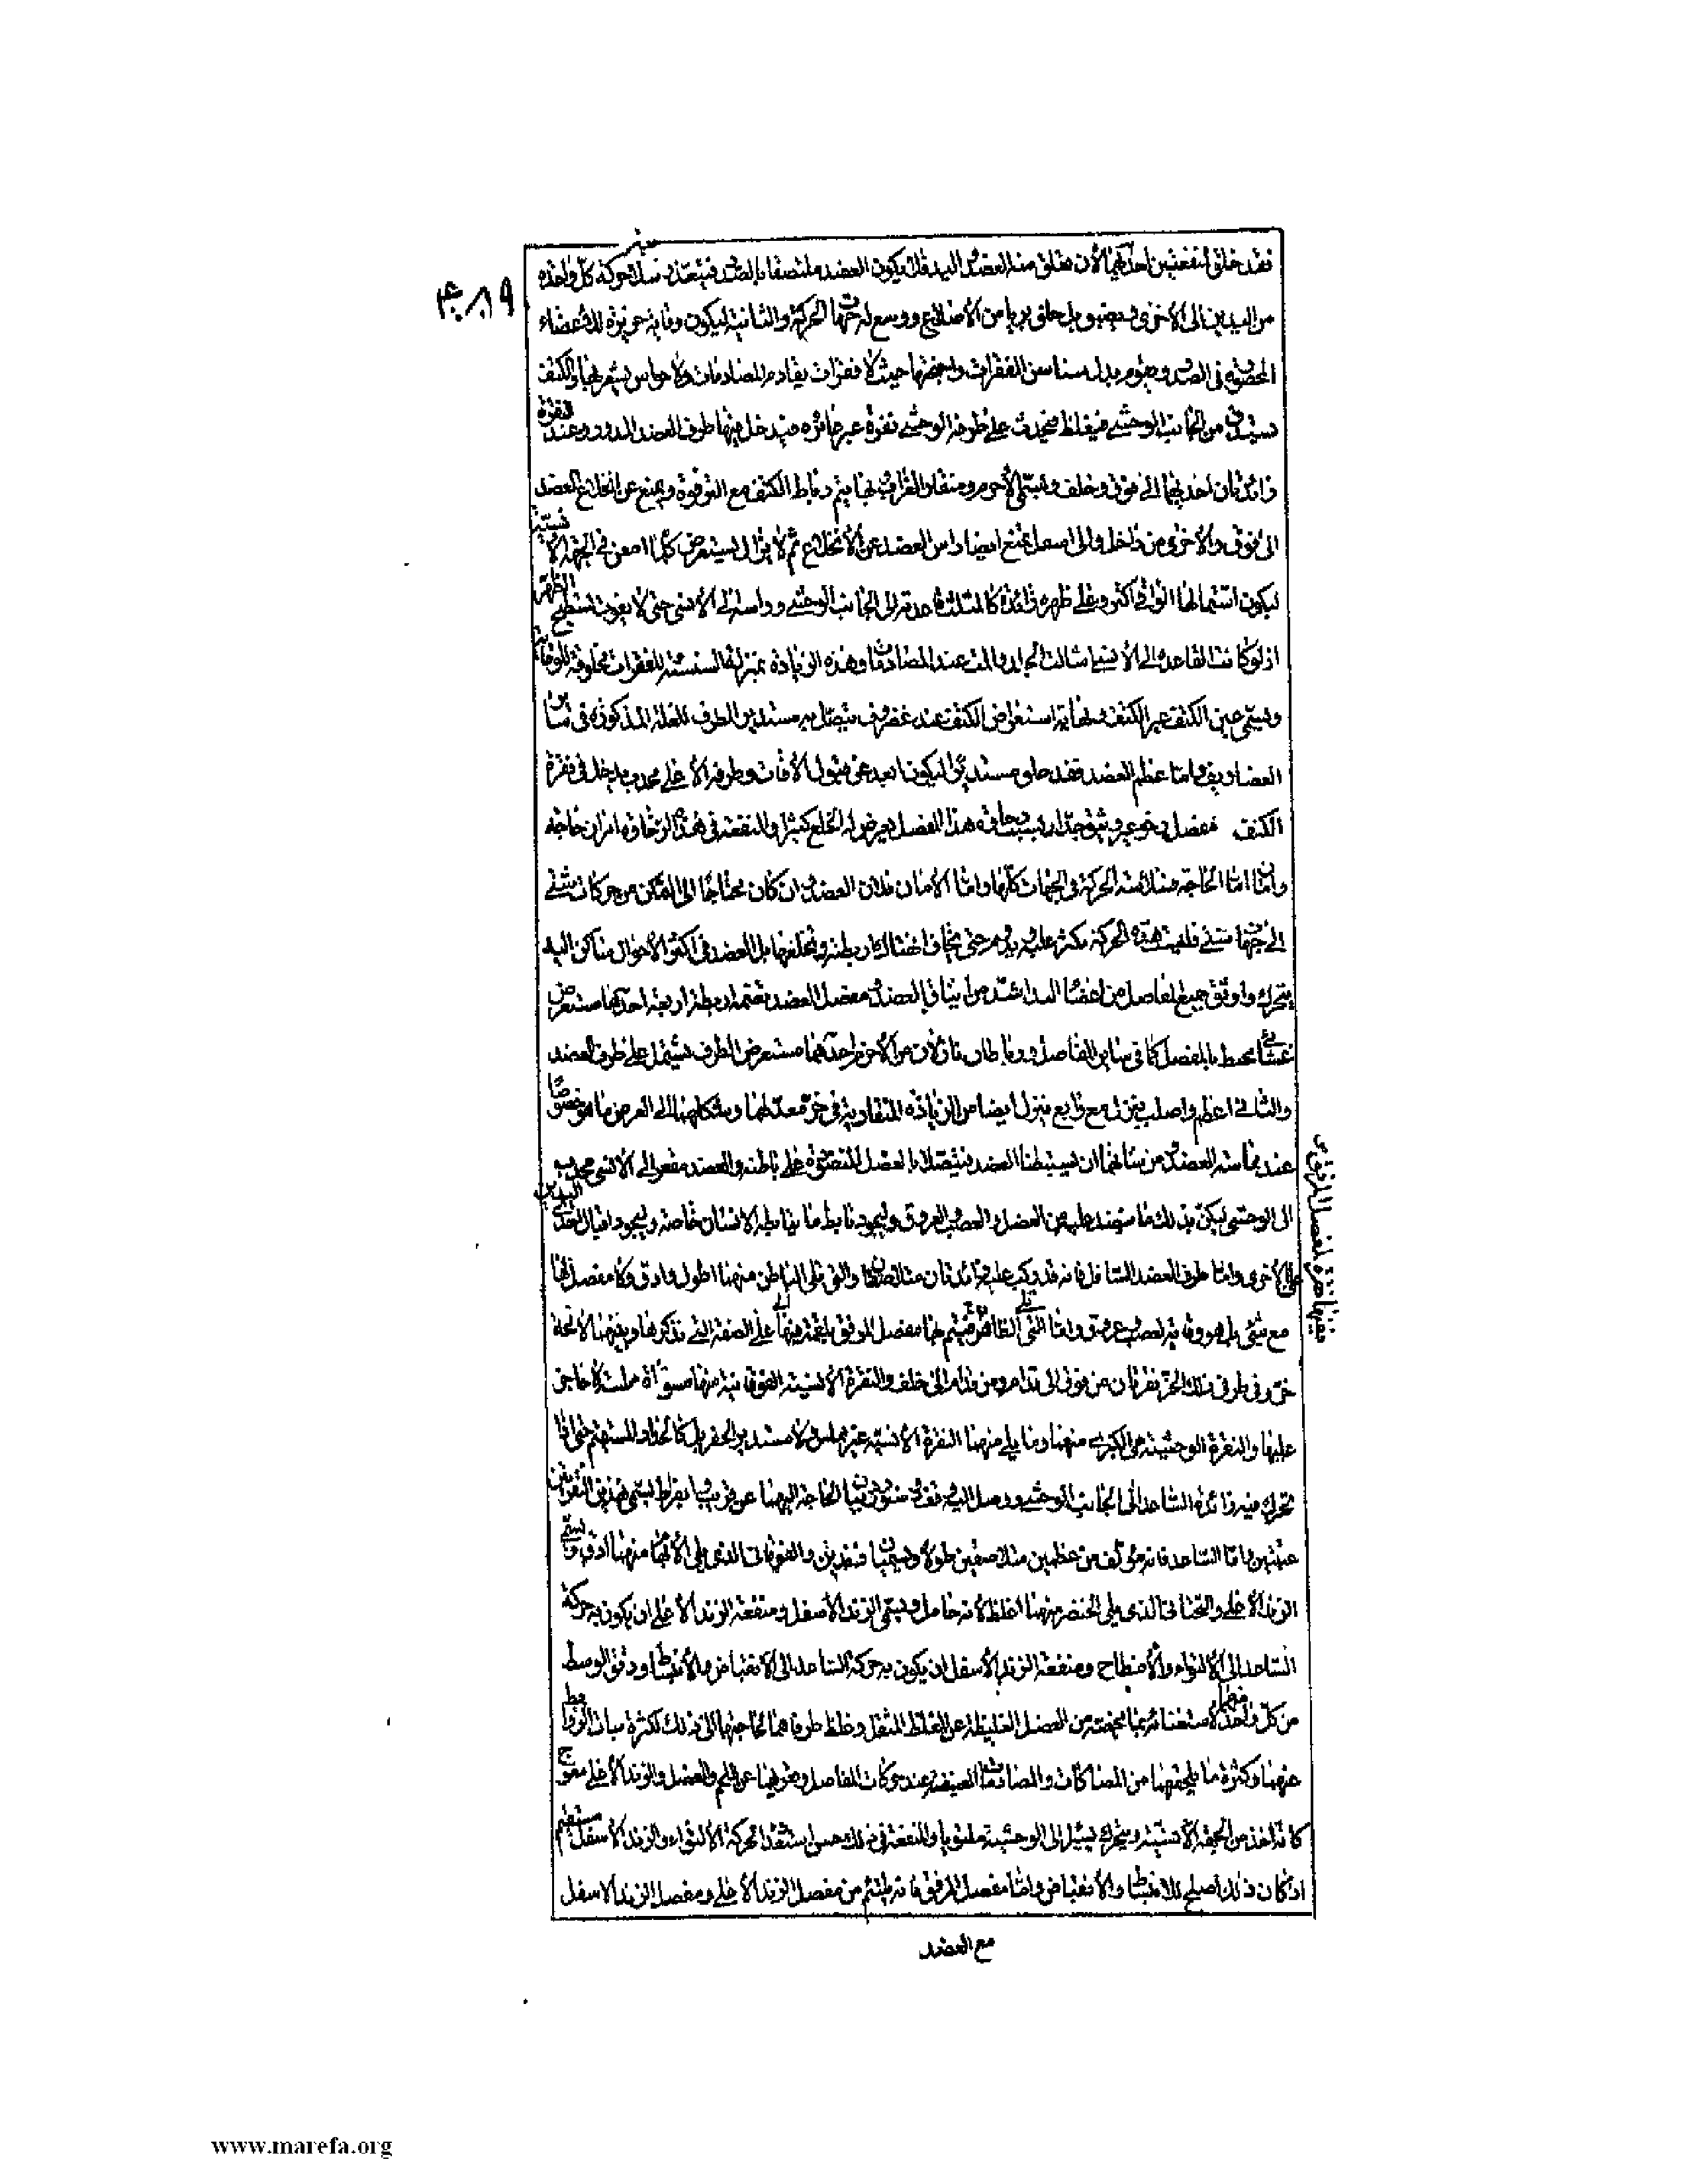 فقد خلق لمنفعتين احدٰهما لأن يتعلق منه العضد و اليد فلا يكون العضد ملتصقا بالصدر فيتعذر سلاسة حركة كل واحدة
من اليدين الى الأخرى و يضيق بل خلق بريا من الأضلاع و وسع له جهات الحركة و الثانية ليكون وقاية حريزة للأعضاء
المحصورة فى الصدر و يقوم بدل سناسن الفقرات و اجنحتها حيث لا فقرات يقاوم المصادمات و لا حواس يشعر بها و الكتف
يستدق من الجانب الوحشى فيغلظ فيحدث على طرفه الوحشى نقرة غير غائرة فيدخل فيها طرف العضد المدور و عند النقرة
زائدتان احديهما الى فوق و خلف و تسمى الأخرم و منقار الغراب بها يتم رباط الكتف مع الترقوة و يمنع عن انخلاع العضد
الى فوق و الأخرى من داخل و الى اسفل تمنع ايضا رأس العضد عن الانخلاع ثم لا يزال يستعرض كلما امعن فى الجهة الانسية
ليكون اشتمالها الواقى أكثر و على ظهره زائدة كالمثلث قاعدته الى الجانب الوحشى و رأسه الى الأنسى حتى لا يفوت تسطيح الظهر
اذ لو كانت القاعدة الى الأنسى اشالت الجلد و المت عند المصادمات و هذه الزيادة بمنزلة السنسنة للفقرات مخلوقة للوقاية
و تسمى عين الكتف عير الكتف و نهاية استعراض الكتف عند غضروف يتصل به مستدير الطرف للعلة المذكورة فى سائر
الغضاريف و اما عظم العضد فقد خلق مستديرا ليكون ابعد عن قبول الأفات و طرفه الأعلى محدب يدخل فى نقرة
الكتف بمفصل رخو غير وثيق جدا و بسبب رخاوة هذا المفصل يعرض له الخلع كثيرا و المنفعة فى هذه الرخاوة امران حاجة
و امان اما الحاجة فسلاسة الحركة فى الجهات كلها و اما الأمان فلأن العضد و ان كان محتاجا الى التمكن من حركات شتى
الى جهات شتى فليست هذه الحركة تكثر عليه و يدوم حتى يخاف انهتاك اربطته و تخلعها بل العضد فى اكثر الأحوال ساكن و اليد
يتحرك و اوثق جميع المفاصل من اعضاء اليد اشد من ايثاق العضد و مفصل العضد يضمه اربطة اربعة احدها مستعرض
غشائى محيط بالمفصل كما فى سائر المفاصل و رباطان نازلان من الأخرم احدهما مستعرض الطرف يشتمل على طرف العضد
و الثانى اعظم و اصلب ينزل مع رابع ينزل ايضا من الزيادة المنقارية فى حز معد لهما و شكلهما الى العرض ما هو خصوصا
عند مماسة العضد و من شانهما ان يستبطنا العضد فيتصلا بالعضل المنضودة على باطنه و العضد مقعر الى الأنسى محدب
الى الوحشى ليكن بذلك ما ينضد عليه من العضل و العصب و العروق و ليجود تابط ما يتابطه الانسان خاصة و ليجود اقبال احدى اليدين
على الأخرى و اما طرف العضد السافل فانه قد ركب عليه زائدتان متلاصقتان و التى تلى الباطن منهما اطول و ادق و لا مفصل لها
مع شئ بل هو وقاية لعصب و عروق و اما التى تلى الظاهر فيتم بها مفصل المرفق بلقمة فيها على الصفة التى نذكرها و بينهما لا محالة
حز و فى طرفى ذلك الحز نقرتان من فوق الى قدام و من قدام الى خلف و النقرة الأنسية الفوقانية منهما مسوّاة مملسة لا حاجز
عليها و النقرة الوحشية هى الكبرى منهما و ما يلى منهما النقرة الأنسية غير مملس و لا مستدير الحفر بل كالجدار المستقيم حتى اذا
تحرك فيه زائدة الساعد الى الجانب الوحشى و وصل اليه وقف و سنورد بيان الحاجة اليهما عن قريب و ابقراط يسمى هذين النقرتين
عينين و اما الساعد فانه مؤلف من عظمين متلاصقين طولا و يسميان زندين و الفوقانى الذى يلى الأبهام منهما ادق و يسمى
الزند الأعلى و التحتانى الذى يلى الخنصر منهما اغلظ لانه حامل و يسمى الزند الأسفل و منفعة الزند الأعلى ان يكون به حركة
الساعد الى الألتواء و الأنبطاح و منفعة الزند الأسفل ان يكون به حركة الساعد الى الأنقباض و الأنبساط و دقق الوسط
من كل واحد منهما لاستغنائه بما يحفه من العضل الغليظة عن الغلظ المثقل و غلظ طرفاهما لحاجتهما الى ذلك لكثرة نبات الروابط
عنهما و كثرة ما يلحقهما من المصاكات و المصادمات العنيفة عند حركات المفاصل و تعريهما عن اللحم و العضل و الزند الأعلى معوج
كانه اخذ من الجهة الأنسية و يتحرك يسيرا الى الوحشية ملتويا و المنفعة فى ذلك حسن استعداد لحركة الألتواء و الزند الأسفل مستقيم
اذ كان ذلك اصلح للانبساط و الأنقباض و اما مفصل المرفق فانه يلتئم من مفصل الزند الأعلى و مفصل الزند الاسفل
مع العضد
www.marefa.org